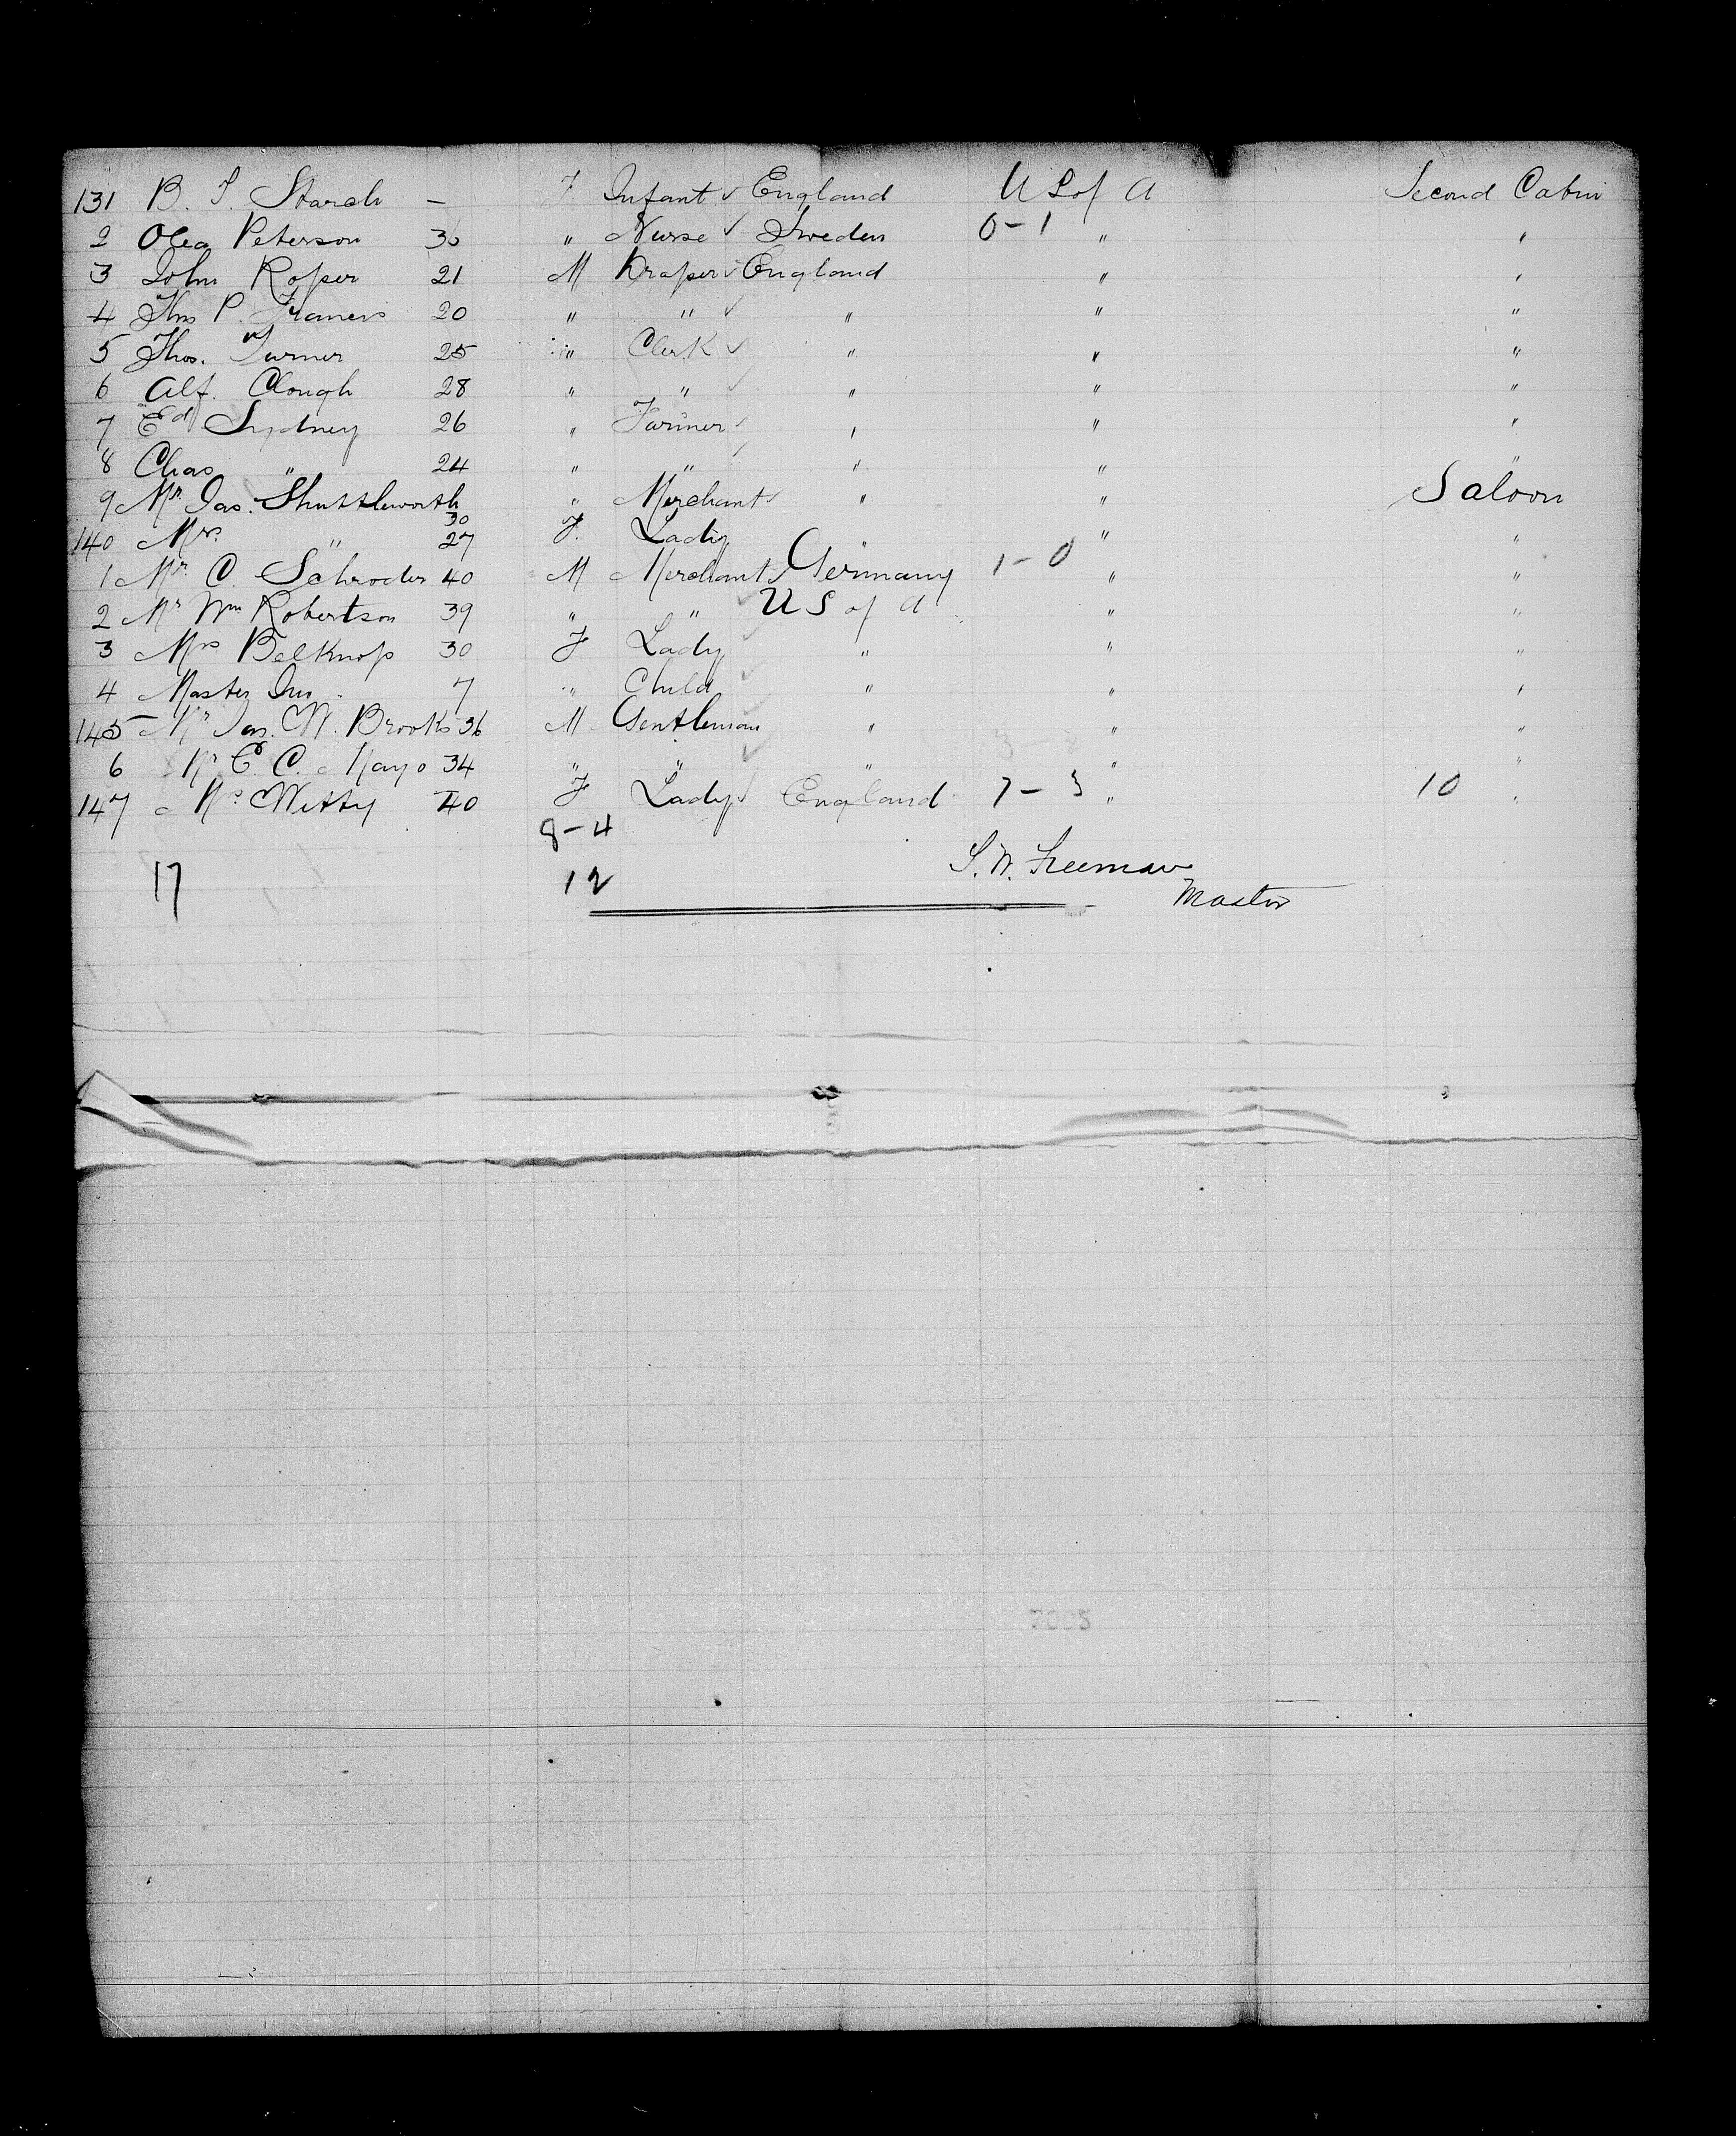 131 B. T. Starch — F Infant ✓ England U S of A Second Cabin
2 Olea Peterson 36 " Nurse ✓ Sweden 0-1 " "
3 John Roper 21 M Draper ✓ England " "
4 Thos P. Francis 20 " " ✓ " " "
5 Thos. Turner 25 " Clerk ✓ " " "
6 Alf. Clough 28 " " ✓ " " "
7 Ed Sydney 26 " Farmer ✓ " " "
8 Chas " 24 " " ✓ " " "
9 Mr Jas. Shuttleworth 30 " Merchant ✓ " " Saloon
140 Mrs. " 27 F. Lady " " "
1 Mr. C. Schroder 40 M Merchant ✓ Germany 1-0 " "
2 Mr Wm Robertson 39 " " ✓ U S of A " "
3 Mrs Belknop 30 F Lady ✓ " " "
4 Master 7 " Child ✓ " " "
145 Mr Jas. M. Brooks 36 M Gentleman " " "
6 Mr E. C. Mayo 34 " " ✓ " " "
147 Mrs Witty 40 F Lady ✓ England 7-3 " 10 "
8-4
17 12
S. W. Freeman
Master